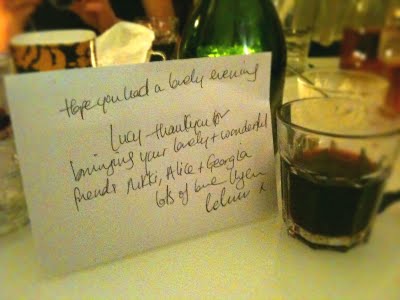 Hope you had a lovely evening
Lucy - thankyou for
bringing your lovely + wonderful
friends Nikki, Alice + Georgia
lots of love
x